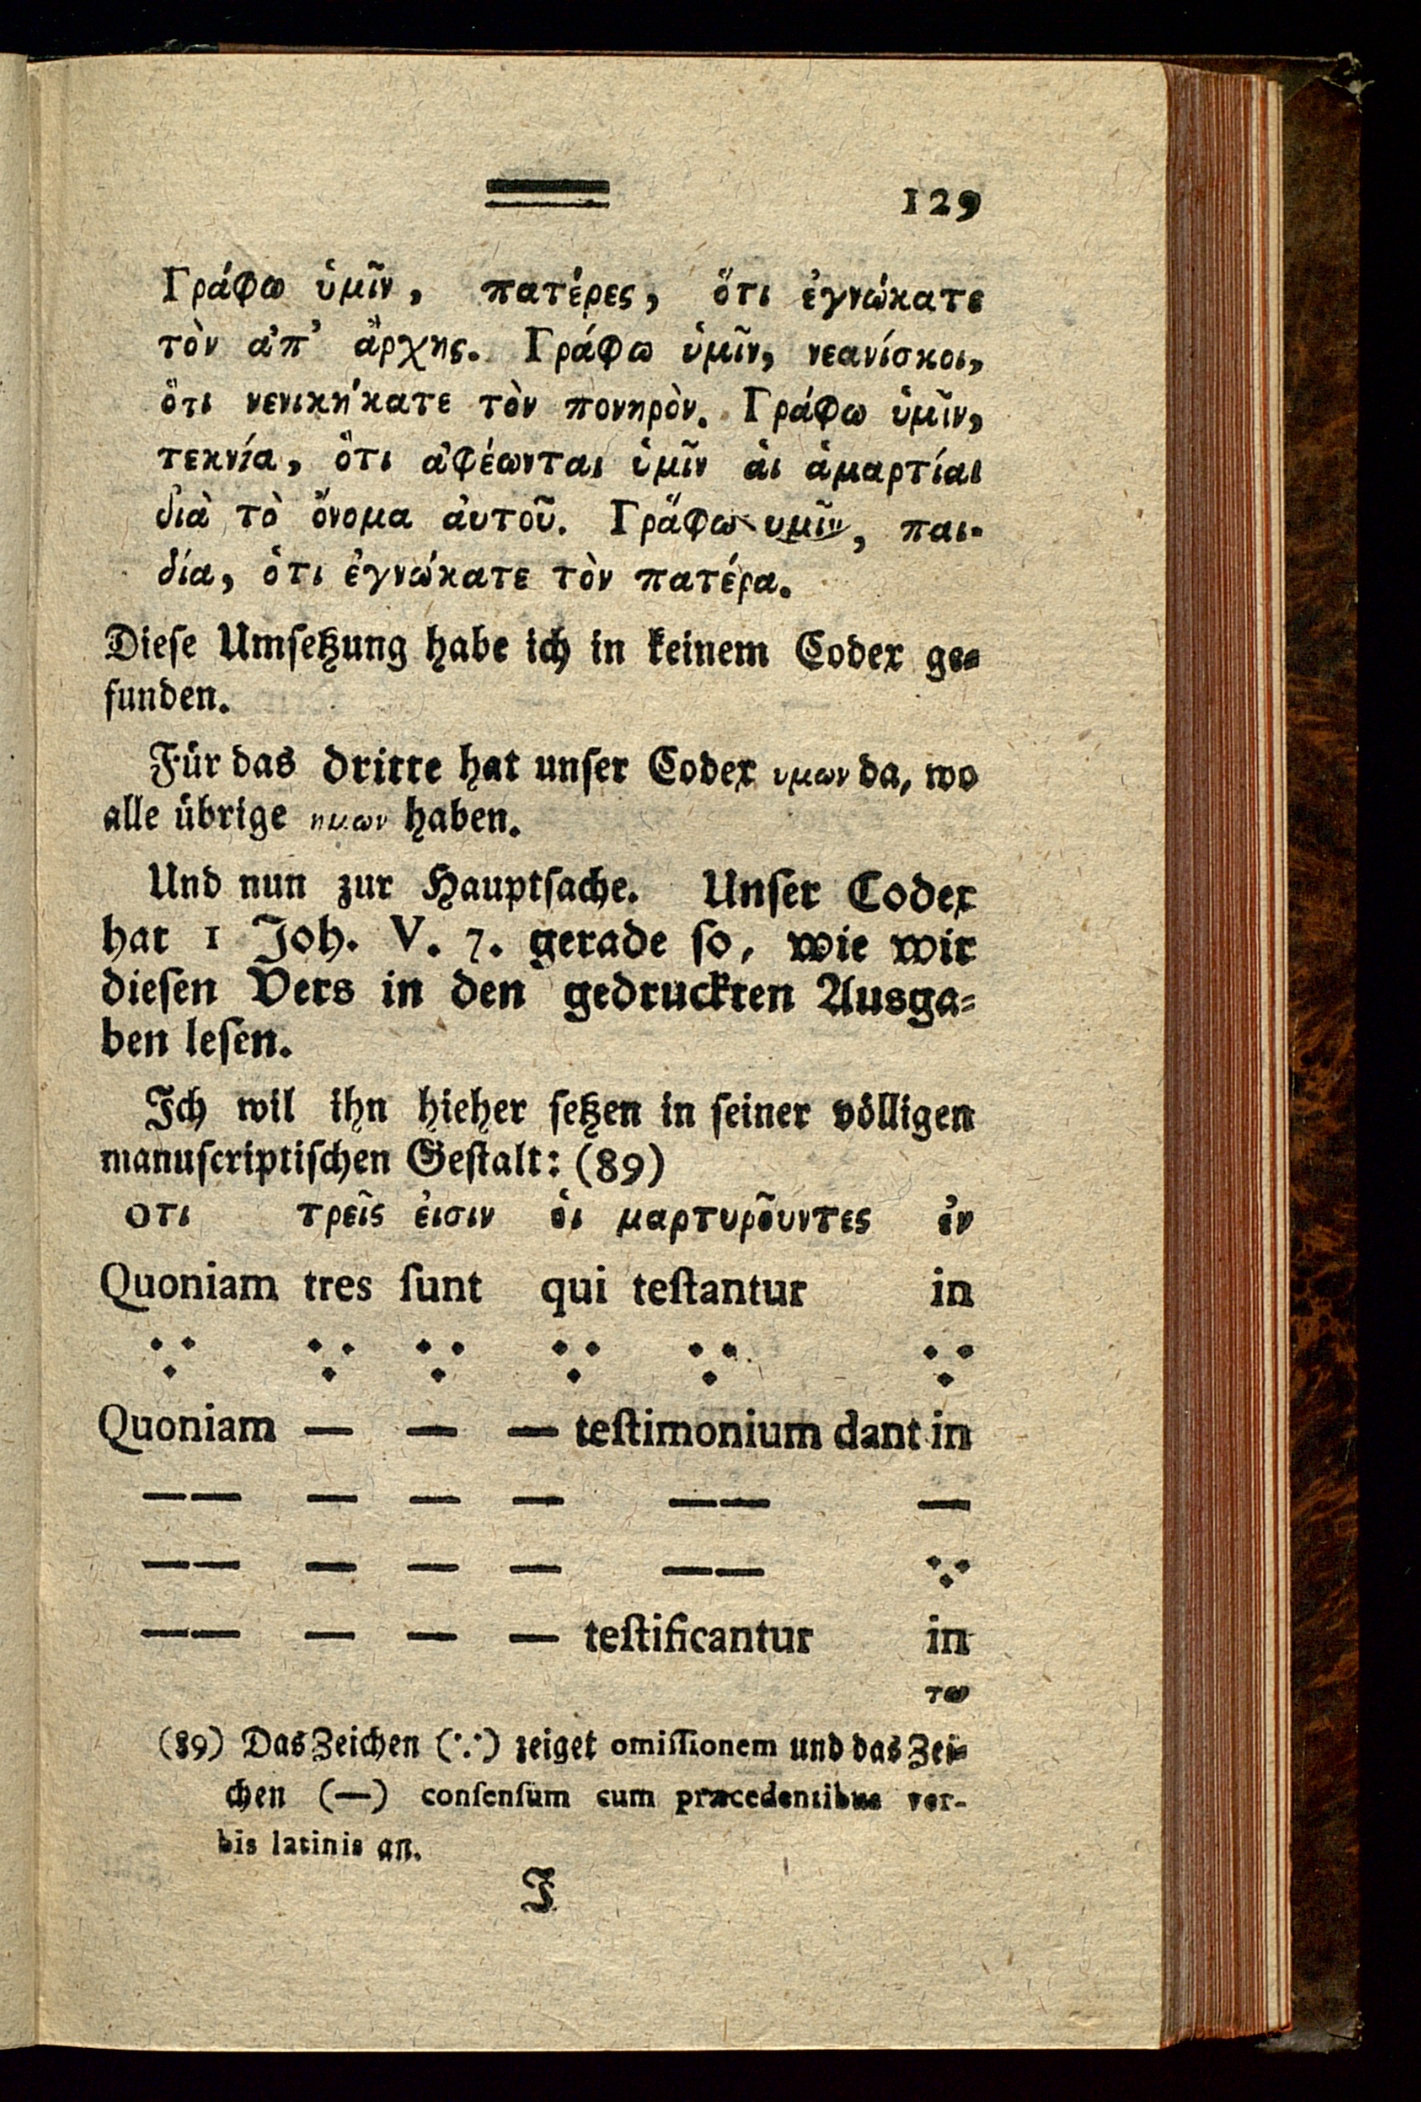 129
Γράφω ὑμῖν, πατέρες, ὅτι ἐγνώκατε
τὸν ἀπ' ἄρχης. Γράφω ὑμῖν, νεανίσκοι,
ὅτι νενικήκατε τὸν πονηρὸν. Γράφω ὑμῖν,
τεκνία, ὅτι ἀφέωνται ὑμῖν ἁι ἁμαρτίαι
διὰ τὸ ὄνομα ἀυτοῦ. Γράφω υμῖν, παι-
δία, ὁτι ἐγνώκατε τὸν πατέρα.
Dieſe Umſetzung habe ich in keinem Codex ge-
funden.
Für das dritte hat unſer Codex υμων da, wo
alle übrige ημων haben.
Und nun zur Hauptſache. Unſer Codex
hat 1 Joh. V. 7. gerade ſo, wie wir
dieſen Vers in den gedruckten Ausga-
ben leſen.
Ich wil ihn hieher ſetzen in ſeiner völligen
manuſcriptiſchen Geſtalt: (89)
οτι τρεῖς ἐισιν ὁι μαρτυροῦντες ἐν
Quoniam tres ſunt qui teſtantur in
∵ ∵ ∵ ∵ ∵ ∵
Quoniam — — — teſtimonium dant in
—— — — — —— —
—— — — — —— ∵
—— — — — teſtificantur in
τω
(89) Das Zeichen (∵) zeiget omiſſionem und das Zei-
chen (—) conſenſum cum præcedentibus ver-
bis latinis an.
J